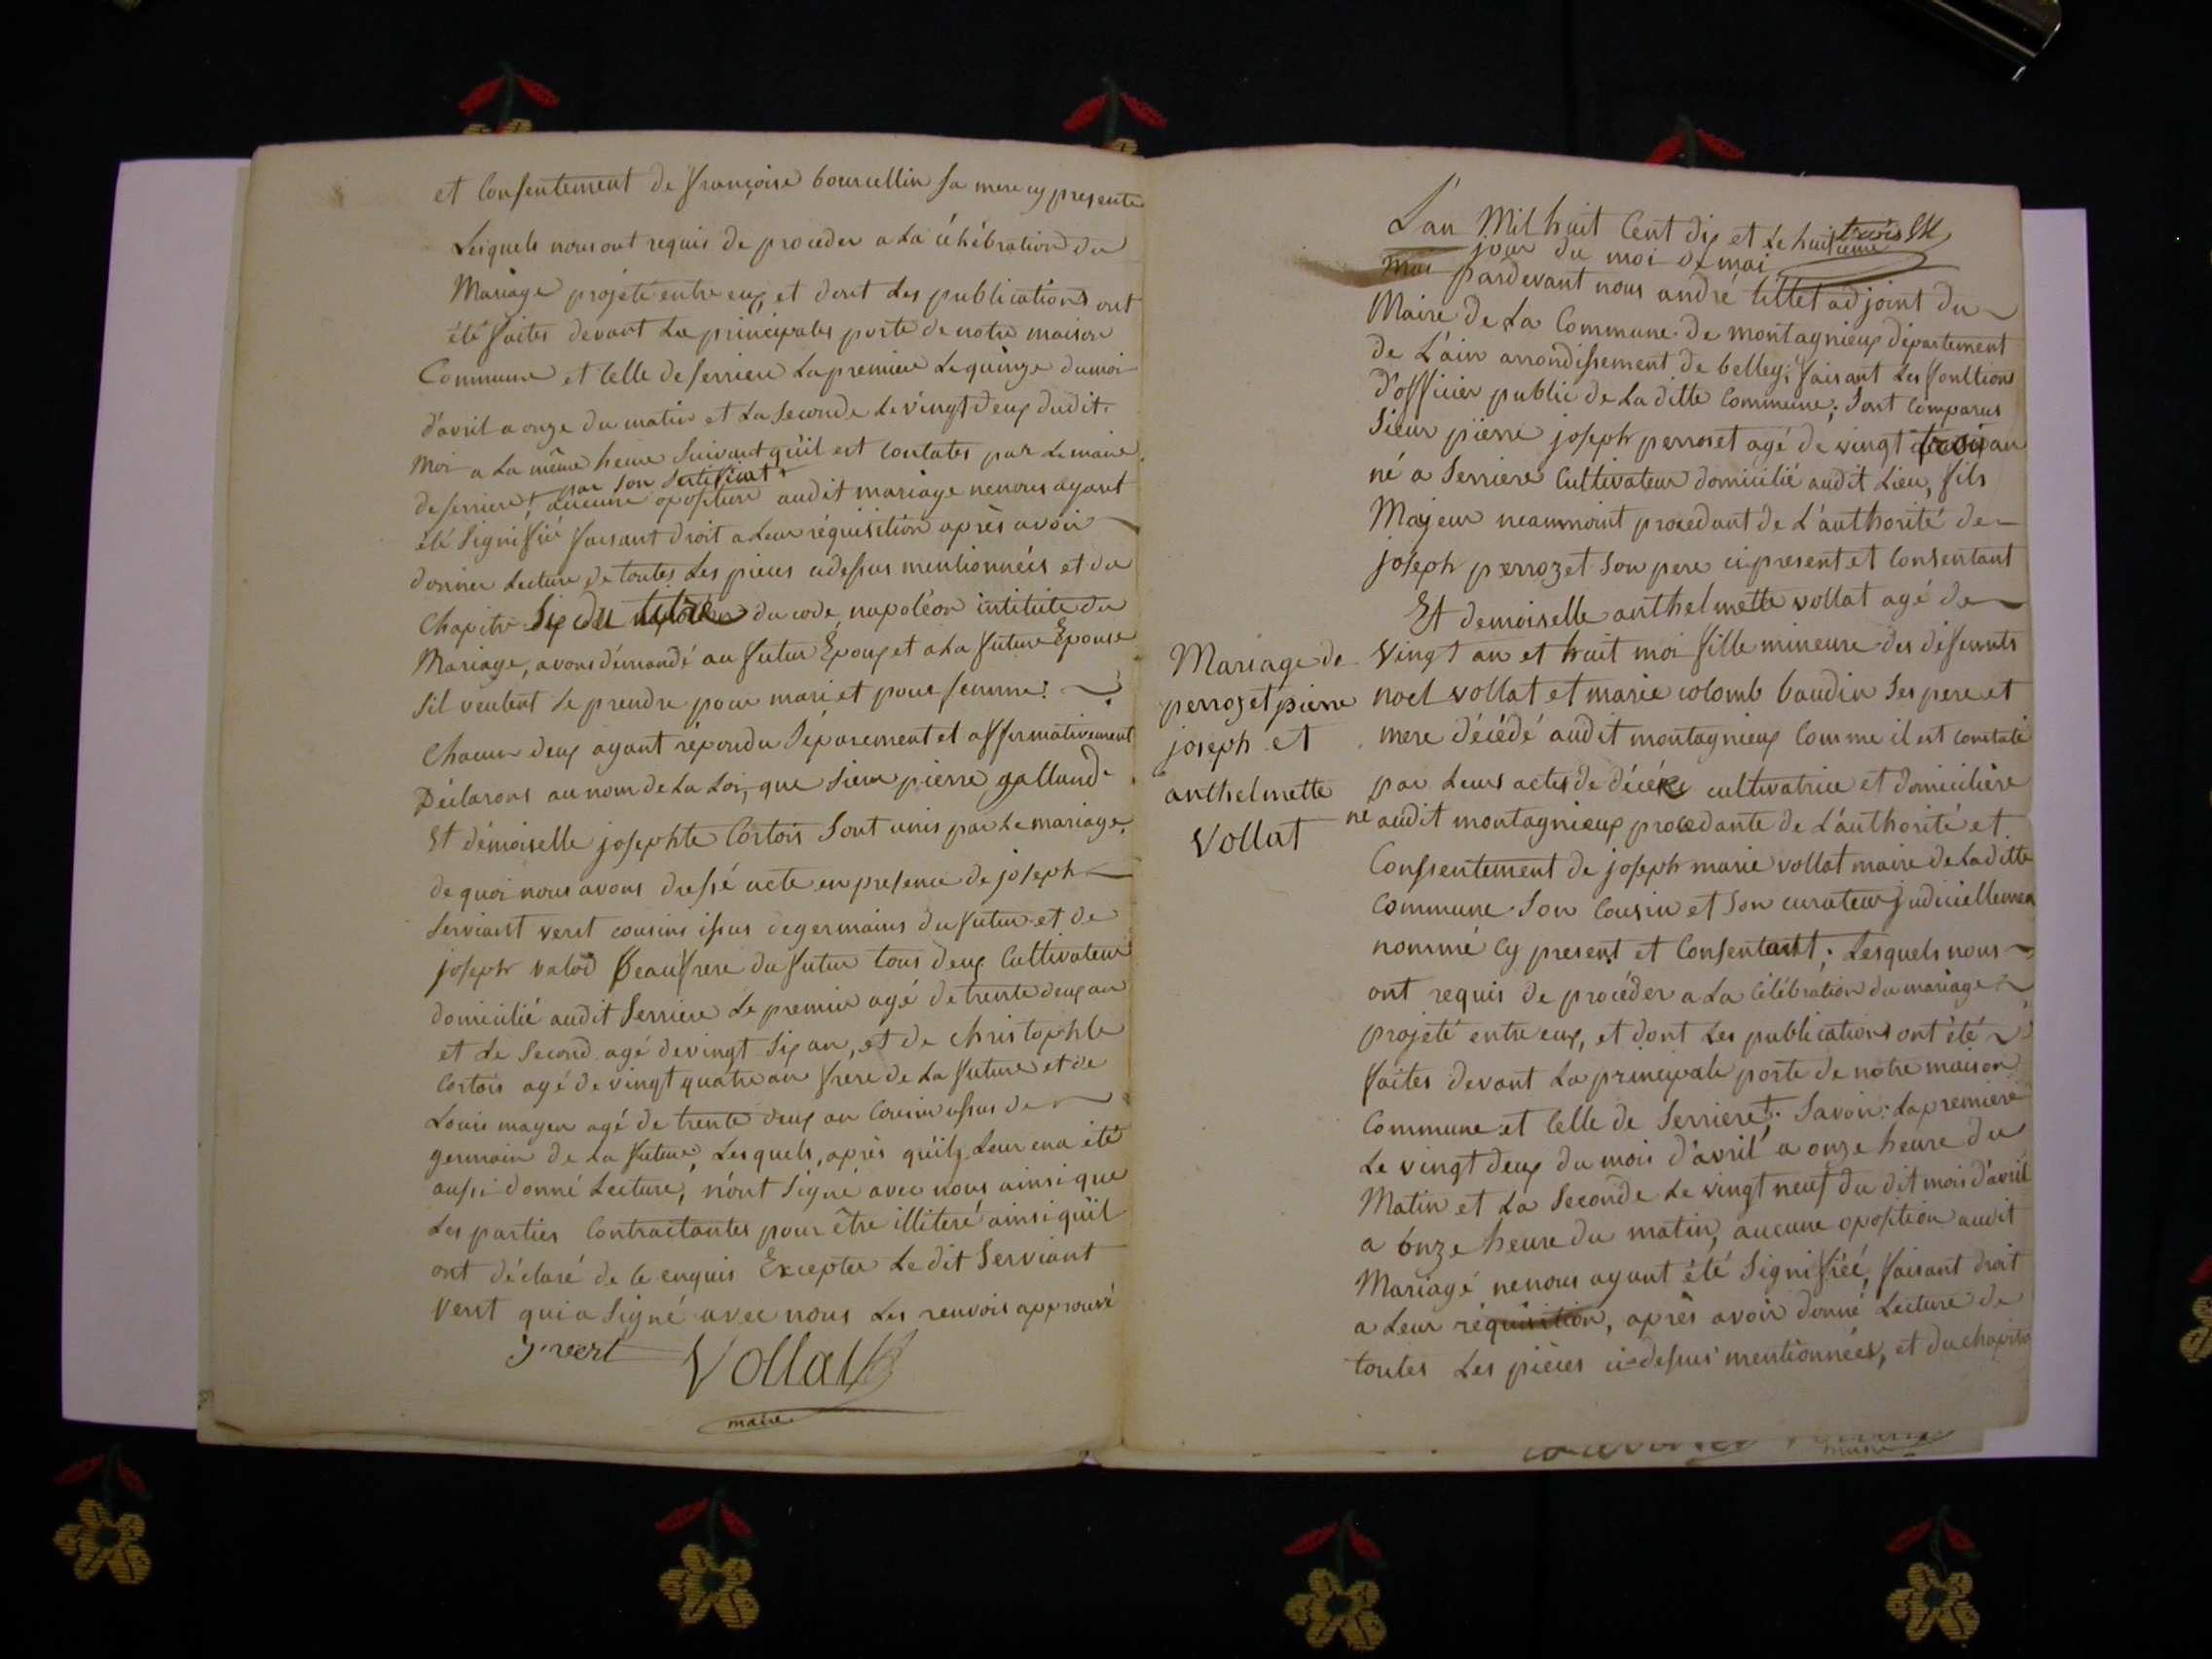 et Consentement de françoise bourcellin sa mere cy presente
Lesquels nous ont requis de proceder a La célébration du
Mariage projeté entre eux et dont Les publications ont
été faites devant La principales porte de notre maison
Commune et Celle de serriere La premiere Le quinze du moi
d'avril a onze du matin et La seconde Le vingt deux dudit
Moi a La même heure suivant qu'il est Contates par Le maire
par son sertificat
de serriere aucune oposition audit mariage ne nous ayant
été signifié faisant droit a Leur réquisition après avoir
donner Lecture de toutes Les pieces cidessus mentionnées et du
Chapitre six du titre du code napoléon intitute du
Mariage, avons démandé au futur Epoux et a La future Epouse
s'il veulent se prendre pour mari et pour femme :
Chacun deux ayant répondu séparement et affirmativement
Déclarons au nom de La Loi, que sieur pierre galland
Et démoiselle josephte Cortois sont unis par Le mariage,
de quoi nous avons dressé acte en presence de joseph
serviant veret cousins issus de germains du futur et de
joseph valod Beaufrere du futur tous deux Cultivateur
domicilié audit serriere Le premier agé de trente deux an
et Le second agé de vingt six an, et de christophle
Cortois agé de vingt quatre an frere de La future et de
Louis mayen agé de trente deux an Cousin issus de
germain de La future, Lesquels, après qu'ils Leur en a été
aussi donné Lecture, n'ont signé avec nous ainsi que
Les parties Contractantes pour être illiteré ainsi qu'il
ont déclaré de Ce enquis Excepter Le dit serviant
veret qui a signé avec nous Les renvois approuvé
Vollat
maire
L'an Mil huit Cent dix et Le huitieme
jour du moi de mai
mai pardevant nous andré tillet adjoint du
Maire de La Commune de montagnieux département
de L'ain arrondissement de belley, faisant Les fonctions
d'officier public de La ditte Commune, sont Comparus
sieur pierre joseph perrozet agé de vingt trois an
né a serriere Cultivateur domicilié audit Lieu, fils
Majeur neanmoint procedant de L'authorité de
joseph perrozet son pere ci present et Consentant
Et demoiselle anthelmette vollat agé de
vingt an et huit moi fille mineure des défunts
noel vollat et marie colomb baudin ses pere et
mere décédé audit montagnieux Comme il est constaté
par Leurs actes de décés cultivatrice et domicilière
né audit montagnieux procedante de L'authorité et
Consentement de joseph marie vollat maire de La ditte
Commune son Cousin et son curateur judiciellemen
nommé Cy present et Consentant ; Lesquels nous
ont requis de procéder a La Célébration du mariage
projeté entre eux, et dont Les publications ont été
faites devant La principale porte de notre maison
Commune et Celle de serriere, savoir : La premiere
Le vingt deux du mois d'avril a onze heure du
Matin et La seconde Le vingt neuf du dit mois d'avril
a onze heure du matin, aucune oposition audit
Mariagé ne nous ayant été signifiée, faisant droit
a Leur réquisition, après avoir donné Lecture de
toutes Les pièces ci-dessus mentionnées, et du chapitre
Mariage de
perrozet pierre
joseph et
anthelmette
Vollat